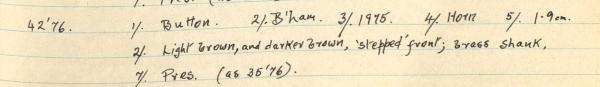 42'76. 1/. Button. 2/. B'ham. 3/. 1975. 4/. Horn 5/. 1.9cm.
2/. Light brown, and darker brown, 'stepped' front; brass shank,
7/. Pres. (as 35'76).